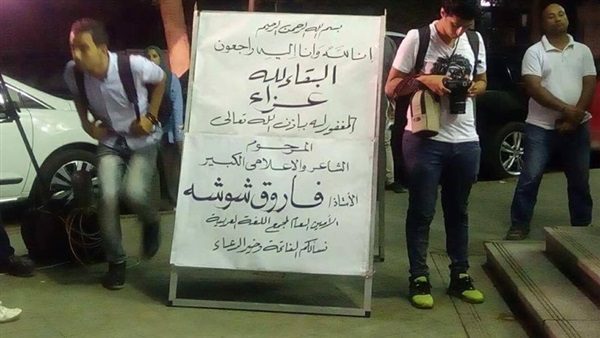 بسم الله الرحمن الرحيم
إنا لله وإنا إليه راجعون
البقاء لله
عزاء
المغفور له بإذن الله تعالى
المرحوم
الشاعر والإعلامي الكبير
الأستاذ/ فاروق شوشه
الأمين العام لمجمع اللغة العربية
نسألكم الفاتحة وخير الدعاء